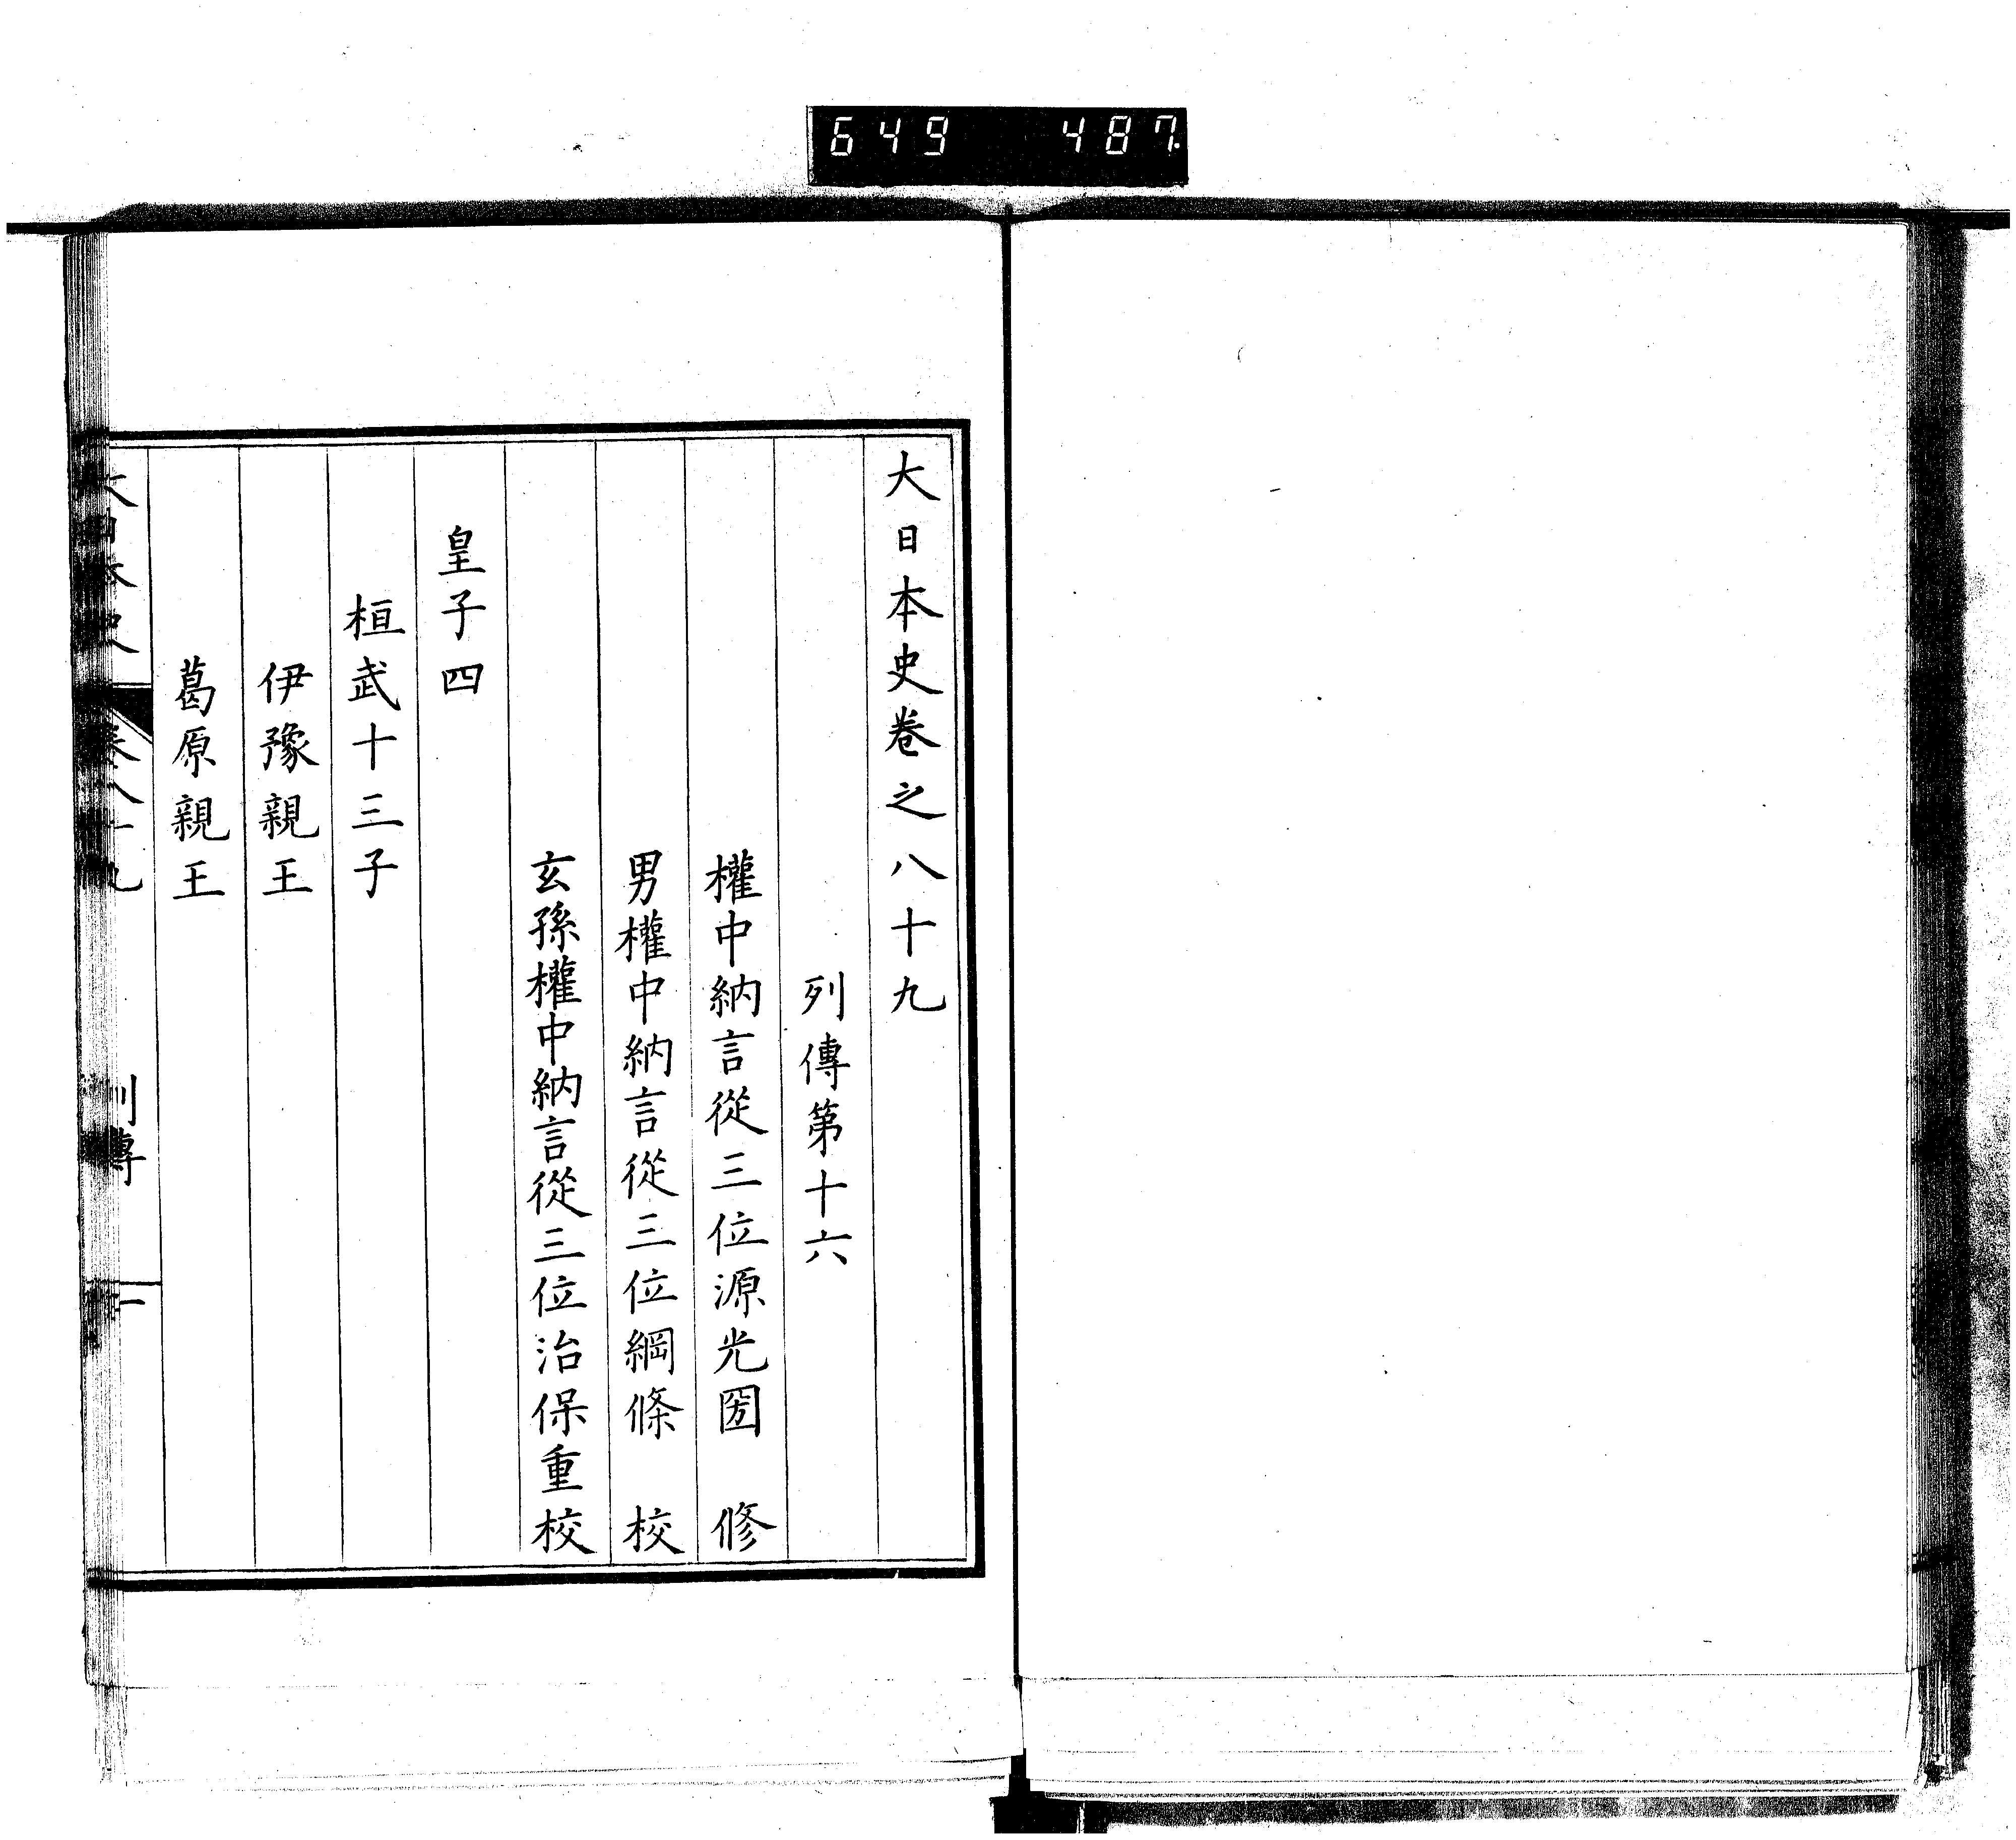 649 487
大日本史卷之八十九
列傳第十六
權中納言從三位源光圀 修
男權中納言從三位綱條 校
玄孫權中納言從三位治保重校
皇子四
桓武十三子
伊豫親王
葛原親王
大日本史 卷八十九 列傳 一